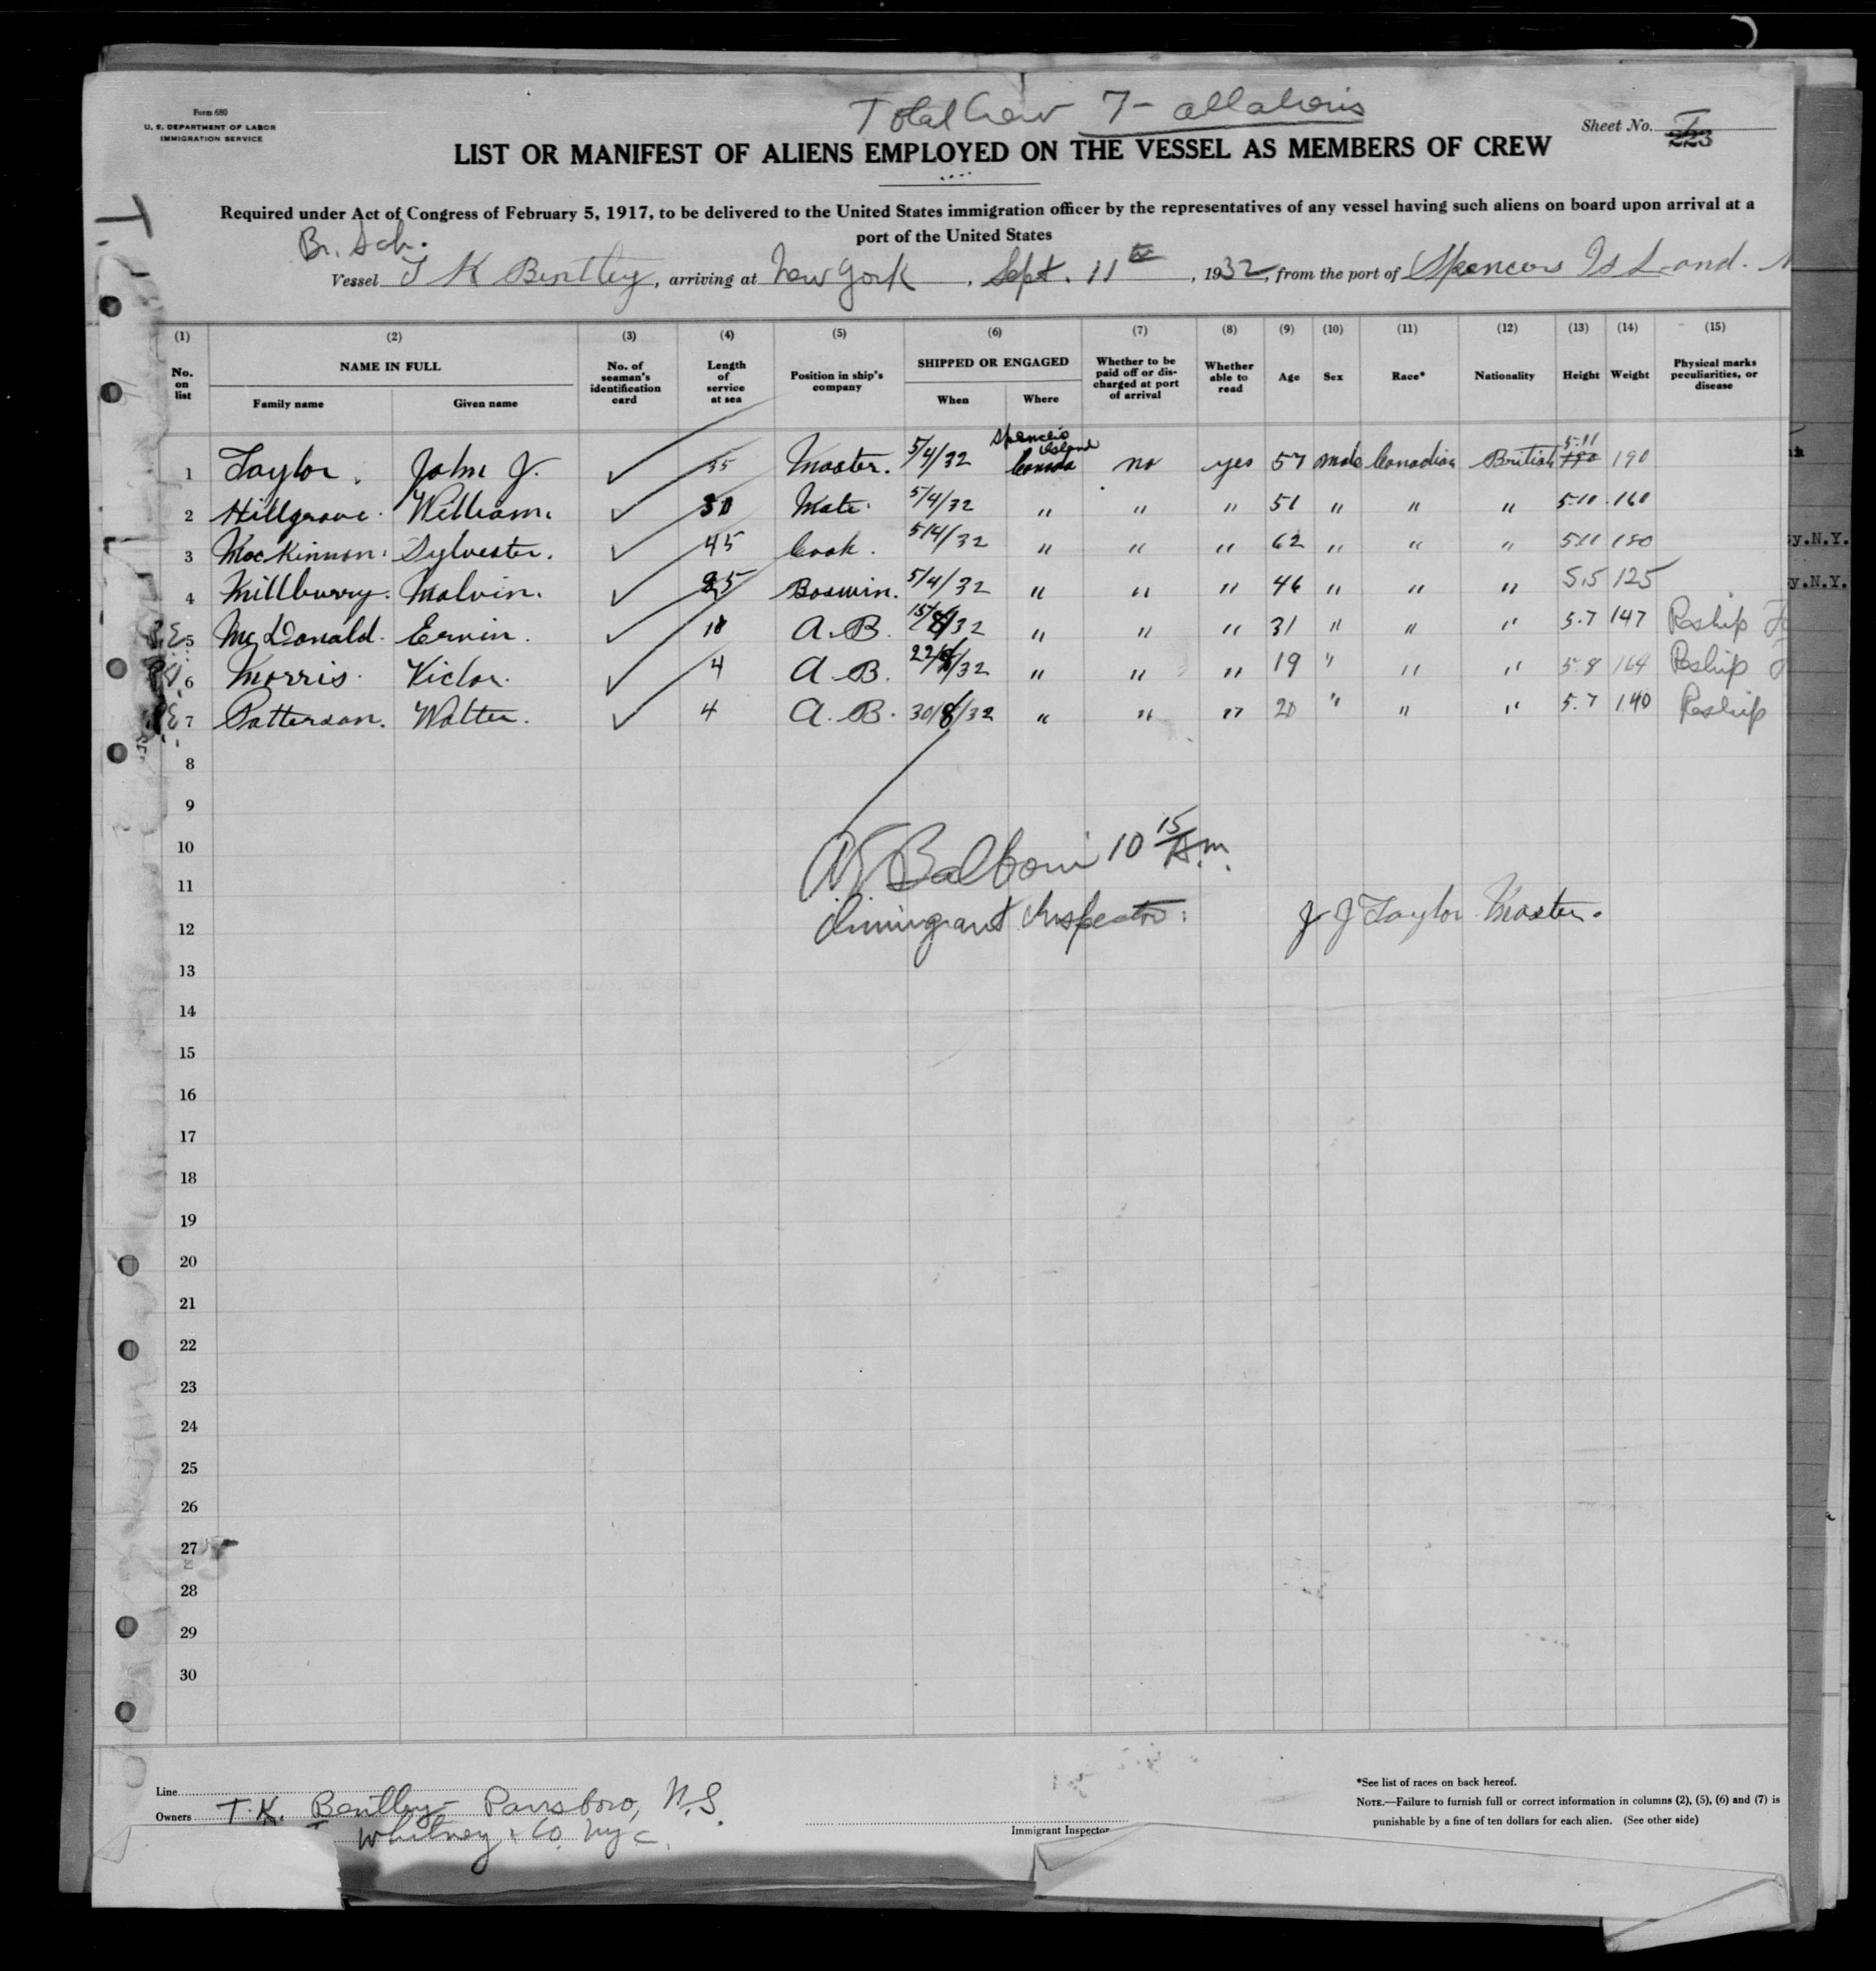 Total Crew 7 - all aliens
Form 680
U. S. DEPARTMENT OF LABOR
IMMIGRATION SERVICE
Sheet No. 1
223
LIST OR MANIFEST OF ALIENS EMPLOYED ON THE VESSEL AS MEMBERS OF CREW
Required under Act of Congress of February 5, 1917, to be delivered to the United States immigration officer by the representatives of any vessel having such aliens on board upon arrival at a
port of the United States
Br. Sch.
Vessel T K Bentley, arriving at New York, Sept. 11th, 1932, from the port of Spencers Island.
(1) (2) (3) (4) (5) (6) (7) (8) (9) (10) (11) (12) (13) (14) (15)
No. on list NAME IN FULL Family name Given name No. of seaman's identification card Length of service at sea Position in ship's company SHIPPED OR ENGAGED When Where Whether to be paid off or discharged at port of arrival Whether able to read Age Sex Race* Nationality Height Weight Physical marks peculiarities, or disease
1 Taylor. John J. ✓ 35 Master. 5/4/32 Spencers Island Canada no yes 57 male Canadian British 5.11 190 190
2 Hillgrove. William. ✓ 30 Mate. 5/4/32 " " " 51 " " " 5.10 160
3 MacKinnon. Sylvester. ✓ 45 Cook. 5/4/32 " " " 62 " " " 5.11 180
4 Millburry. Malvin. ✓ 25 Boswin. 5/4/32 " " " 46 " " " 5.5 125
5 McDonald. Ervin. ✓ 18 A.B. 15/8/32 " " " 31 " " " 5.7 147 Reship
6 Morris. Victor. ✓ 4 A.B. 22/8/32 " " " 19 " " " 5.8 164 Reship
7 Patterson. Walter. ✓ 4 A.B. 30/8/32 " " " 20 " " " 5.7 140 Reship
8
9
10
Balboni 10 15 A.m.
11
12
Immigrant Inspector.
J J Taylor Master.
13
14
15
16
17
18
19
20
21
22
23
24
25
26
27
28
29
30
Line
Owners T. K. Bentley - Parrsboro, N.S.
Whitney & Co. N.Y.C.
Immigrant Inspector
*See list of races on back hereof.
NOTE.—Failure to furnish full or correct information in columns (2), (5), (6) and (7) is
punishable by a fine of ten dollars for each alien. (See other side)
y.N.Y.
y.N.Y.